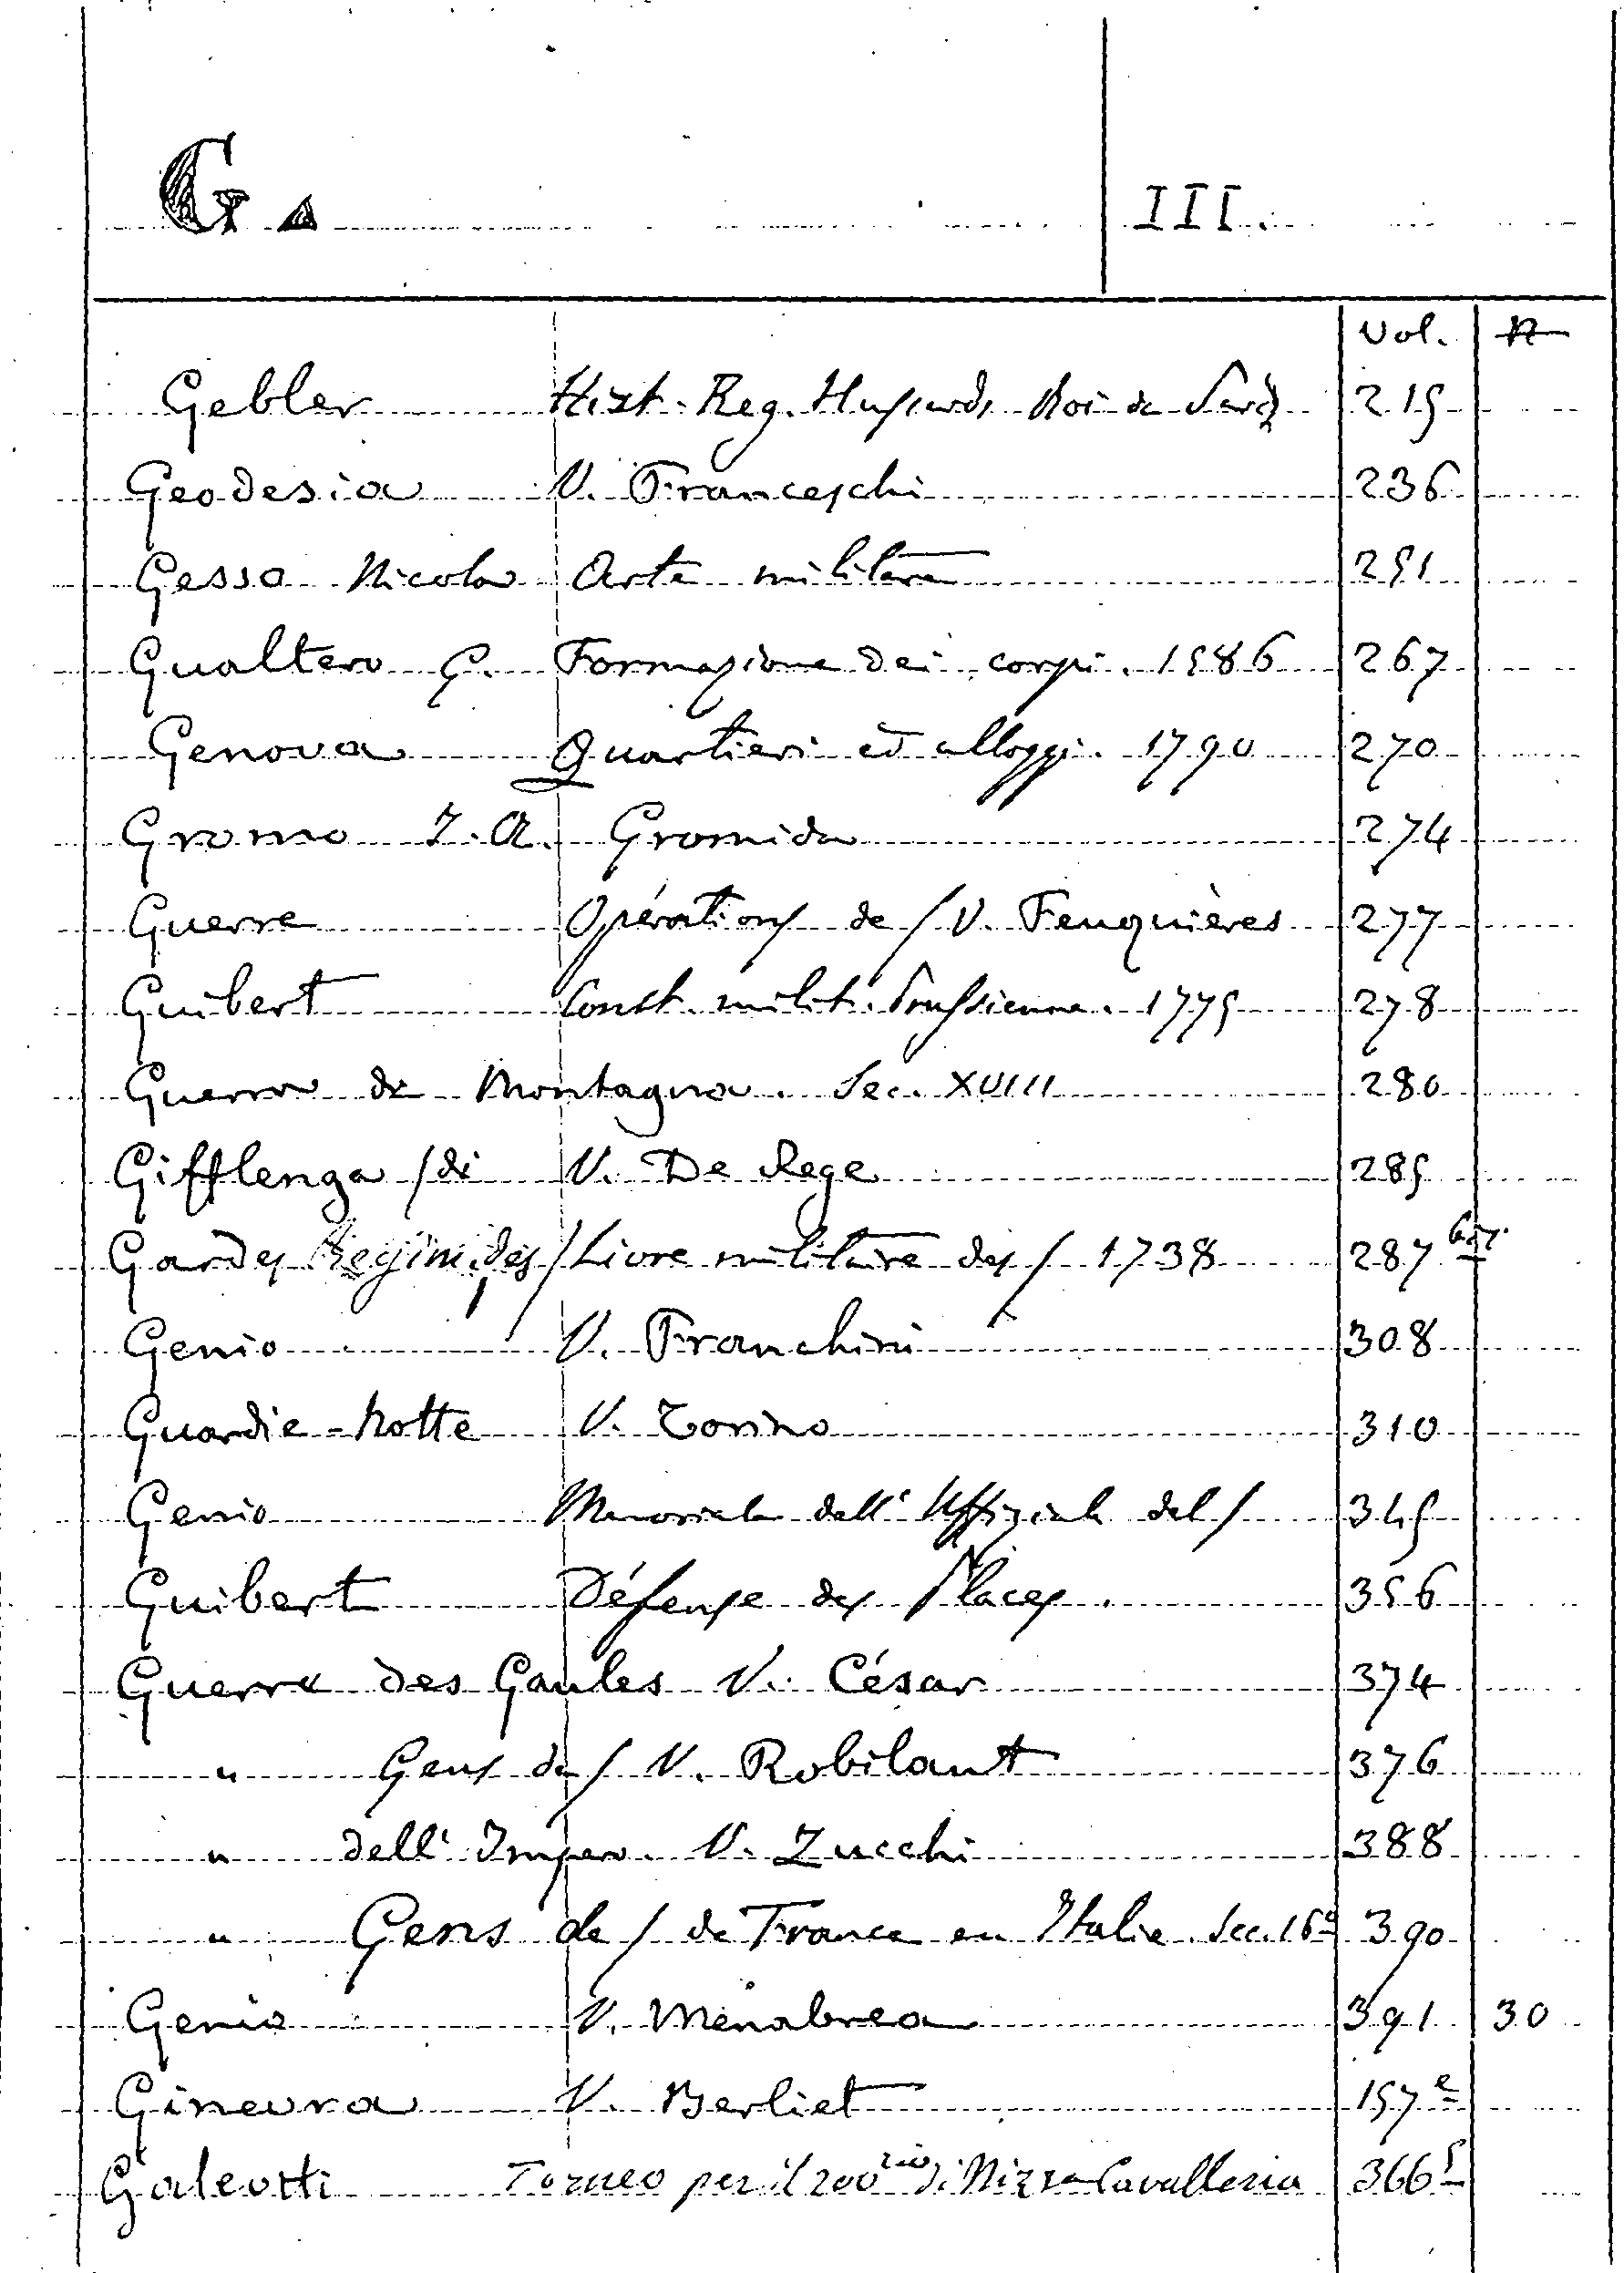 G. III.
Vol. n
Gebler Hist. Reg. Hussards Roi de Sard 215
Geodesia V. Franceschi 236
Gesso Nicola Arte militare 251
Gualtero G. Formazione dei corpi. 1586 267
Genova Quartieri ed alloggi. 1790 270
Gromo I. A. Gromida 274
Guerre Opérations de / V. Feuquières 277
Guibert Const. milit. Prussienne. 1775 278
Guerra di Montagna. Sec. XVIII 280
Gifflenga / di V. De Rege 285
Gardes Regim. des / Livre militaire des / 1738 287 bis.
Genio V. Franchini 308
Guardie-Notte V. Torino 310
Genio Memoriale dell' Uffiziale del / 345
Guibert Défense des Places. 356
Guerre des Gaules V. César 374
" Gens de / V. Robilant 376
" dell' Impero. V. Zucchi 388
" Gens de / de France en Italie. Sec. 16º 390
Genio V. Menabrea 391 30
Ginevra V. Berliet 157 e
Galeotti Torneo per il 200rio di Nizza Cavalleria 366 5